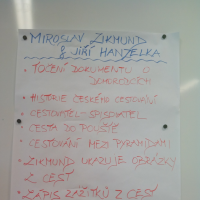 MIROSLAV ZIKMUND
& JIŘÍ HANZELKA
• TOČENÍ DOKUMENTU O
• HISTORIE ČESKÉHO CESTOVÁNÍ
• CESTOVATEL-SPISOVATEL
• CESTA DO POUŠTĚ
• CESTOVÁNÍ MEZI PYRAMIDAMI
• ZIKMUND UKAZUJE OBRÁZKY
Z CEST
• ZÁPIS ZÁŽITKŮ Z CEST